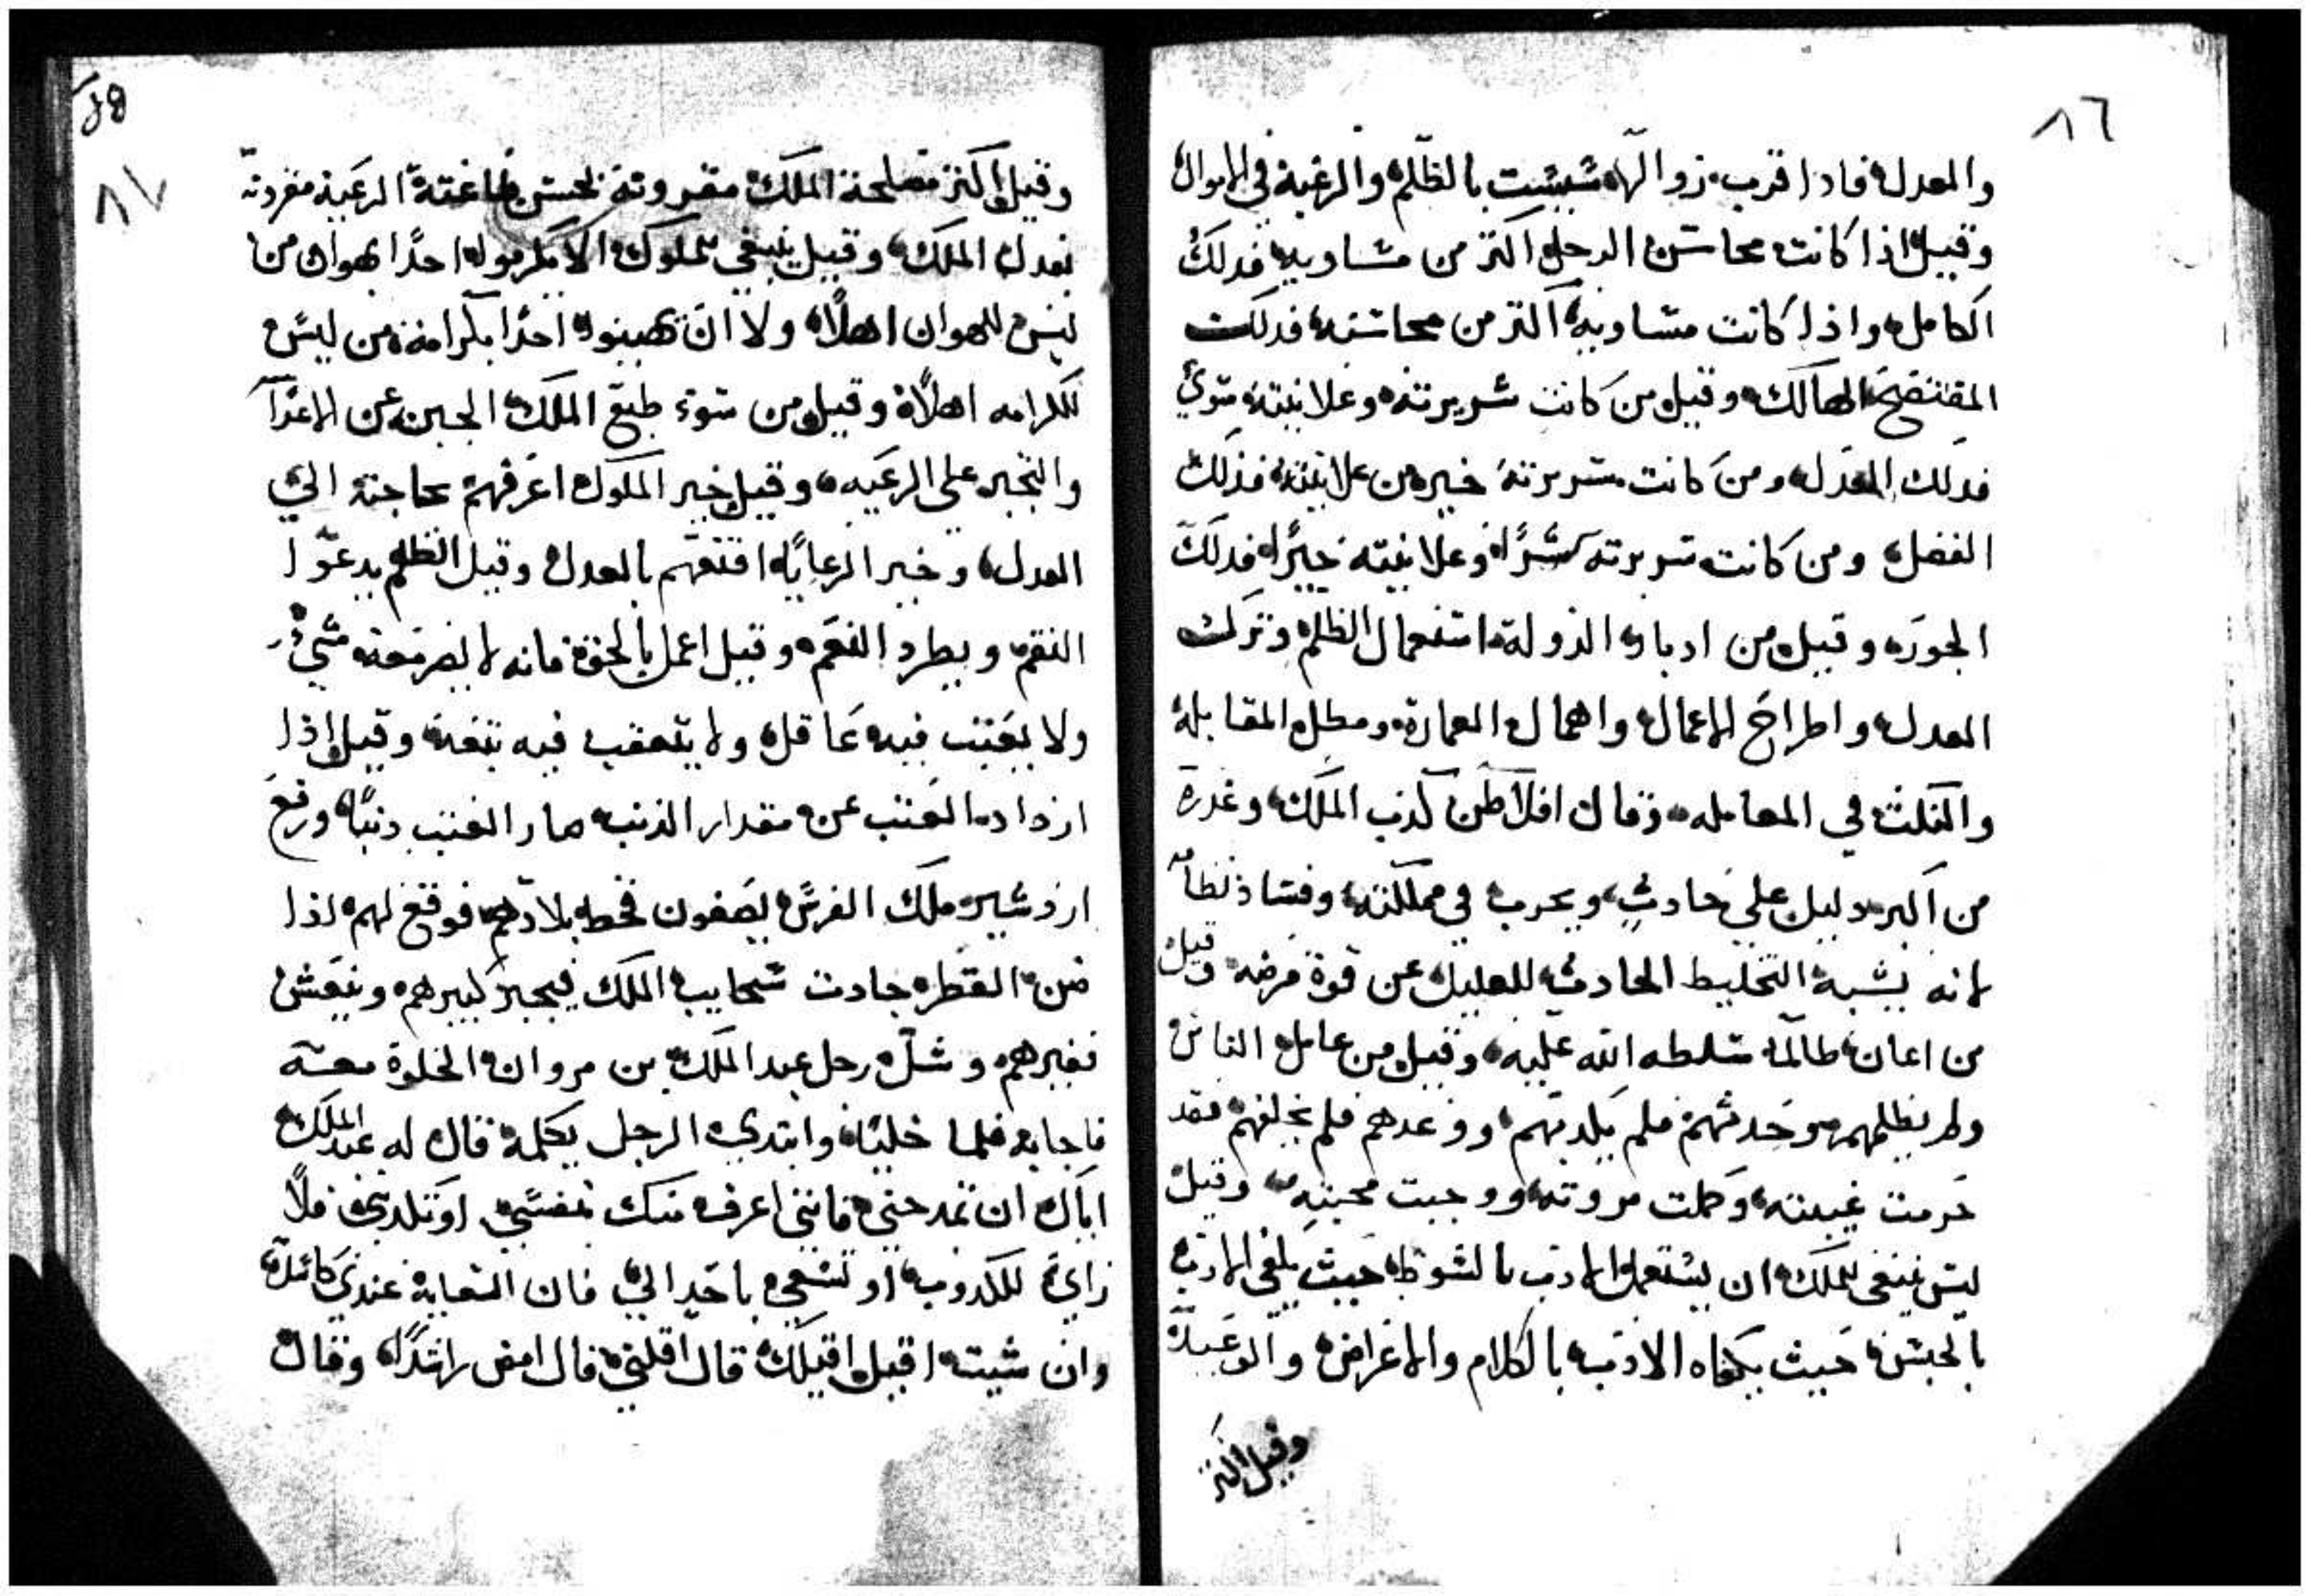 ٨٦
والعدل فاذا قرب زوالها شيبت بالظلم والرغبة في الاموال
وقيل اذا كانت محاسن الرجل اكثر من مساويه فدلك
الكامل واذا كانت مساويه اكثر من محاسنه فدلك
المفتضح الهالك وقيل من كانت سريرته وعلانيته سوي
فدلك العدل ومن كانت سريرته خير من علانيته فذلك
الفضل ومن كانت سريرته شرًا وعلانيته خيرًا فدلك
الجور وقيل من ادبار الدولة استعمال الظلم وترك
العدل واطراح الاعمال واهمال العمارة ومطل المقابلة
والنكث في المعامله وقال افلاطن كذب الملك وغدره
من اكبر دليل على حادث ويحرب في مملكته وفساد نظامه
لانه يشبه التخليط الحادث للعليل عن قوة مرضه وقيل
من اعان ظالمًا سلطه الله عليه وقيل من عامل الناس
ولم يظلمهم وحدثهم فلم يكدبهم ووعدهم فلم يخلفهم فقد
حرمت غيبته وكملت مروته ووجبت محبته وقيل
ليس ينبغي للملك ان يستعمل الادب بالسوط حيث يكفي الادب
بالحبس حيث يكفاه الادب بالكلام والاغراض والوعيد
وقيل اكثر
٨٧
وقيل اكثر مصلحة الملك مقرونة بحسن طاعته الرعية مقرونه
بعدل الملك وقيل ينبغي للملوك الا يكرموا احدًا بهوان من
ليس للهوان اهلًا ولا ان يهينوا احدًا بكرامة من ليس
للكرامه اهلًا وقيل من سوء طبع الملك الجبن عن الاعدآ
والتجبر على الرعيه وقيل خير الملوك اعرفهم بحاجته الي
العدل وخير الرعايا اقنعهم بالعدل وقيل الظلم يدعوا
النقم ويطرد النعم وقيل اعمل بالحق فانه لا يضر معه شيء
ولا يعتب فيه عاقل ولا يتعقب فيه تبعة وقيل اذا
ازداد العتب عن مقدار الذنب صار العتب دنبًا ورفع
اردشير ملك الفرس يصفون قحط بلادهم فوقع لهم اذا
ضن القطر جادت سحايب الملك فيجبر كبيرهم وينعش
فقيرهم وسئل رجل عبد الملك بن مروان الخلوة معه
فاجابه فلما خليا وابتدي الرجل بكلمة قال له عبد الملك
اياك ان تمدحني فانني اعرف منك بنفسي او تكدبني فلا
راي للكدوب او تسعي باحد الي فان السعاية عندي كاسدة
وان شيت اقيل اقيلك قال اقلني قال امض راشدًا وقال